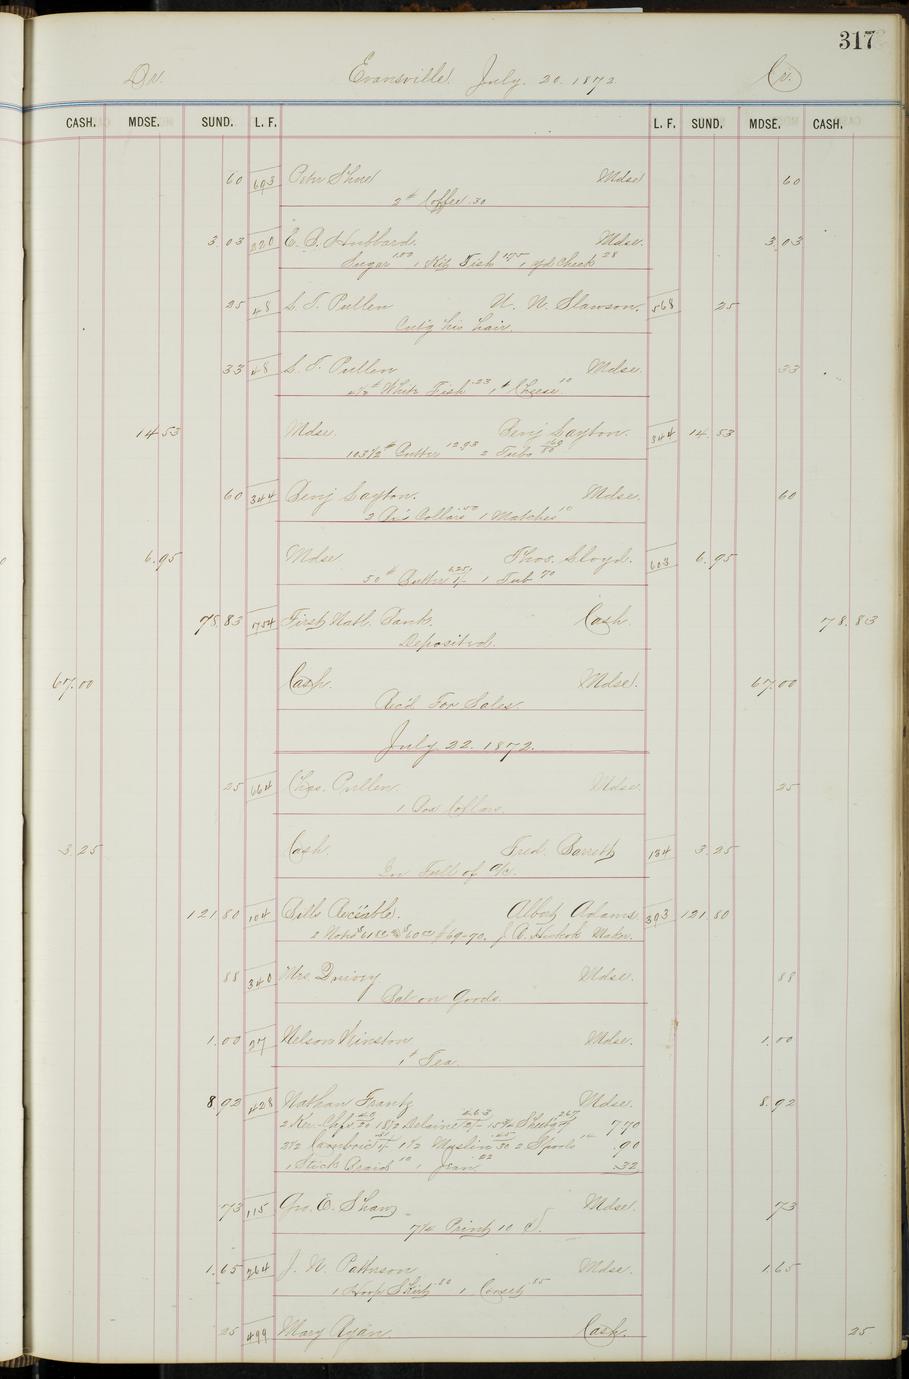 317
Dr. Evansville July. 20. 1872 Cr.
CASH. MDSE. SUND. L. F. L. F. SUND. MDSE. CASH.
60 603 Peter Shue Mdse 60
2# Coffee .30
3.03 220 E. B. Hubbard. Mdse. 3.03
Sugar 100 1 Kit Fish 175 1 yd Check 28
25 48 L. T. Pullen W. W. Slawson. 568 25
Cut'g his hair.
33 48 L. T. Pullen Mdse. 33
White Fish .23 1# Cheese 10
14 53 Mdse. Benj Layton. 344 14.53
103 1/2# Butter 1293 2 Tubs
60 344 Benj Layton. Mdse. 60
Collars 50 1 Matches 10
6.95 Mdse Thos. Lloyd. 603 6.95
50# Butter 625 1 Tub 70
78.83 754 First Natl. Bank. Cash. 78.83
Deposited.
67.00 Cash. Mdse. 67.00
Rec'd For Sales.
July. 22. 1872.
25 664 Chas. Pullen Mdse. 25
1 Box Collars.
3.25 Cash. Fred. Barrett 134 3.25
In Full of a/c.
121 80 104 Bills Rec'able. Albert Adams 393 121.80
2 Notes J. B. Hickok Maker.
88 340 Mrs. Quivey Mdse. 88
Bal on Goods.
1.00 27 Nelson Winston Mdse. 1.00
1# Tea.
8.92 428 Nathan Frantz Mdse. 8.92
2 Ker. Chfs 18 1/2 Delaine 15 3/4 Sheetg 7 70
2 1/2 Cambric 1 1/2 Muslin 2 Spools 14 .90
1 Stick Braid 10 1 Jean 22 .32
73 115 Geo. E. Shaw Mdse. 73
7 1/4 Print 10 c
1.65 264 J. W. Patterson Mdse. 1.65
1 Hoop Skirt 80 1 Corset 85
25 499 Mary Ryan. Cash. 25